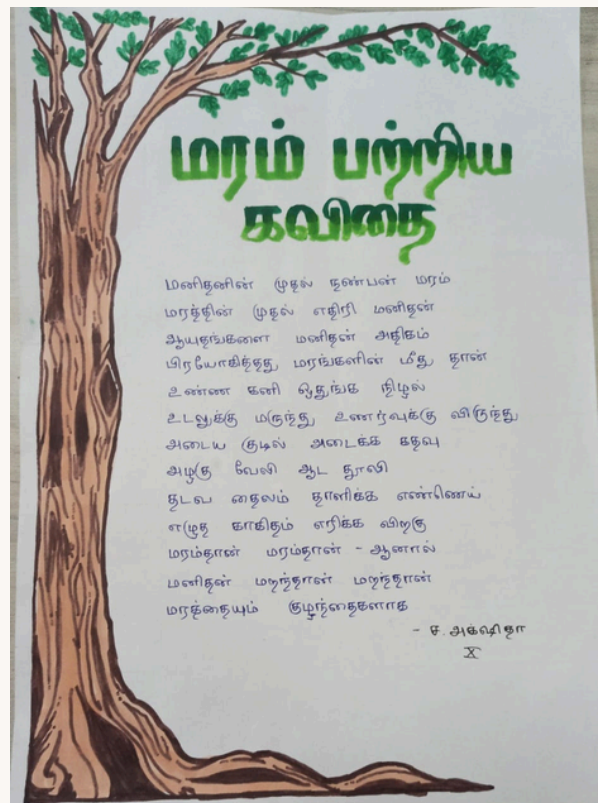 மரம் பற்றிய
கவிதை
மனிதனின் முதல் நண்பன் மரம்
மரத்தின் முதல் எதிரி மனிதன்
ஆயுதங்களை மனிதன் அதிகம்
பிரயோகித்தது மரங்களின் மீது தான்
உண்ண கனி ஒதுங்க நிழல்
உடலுக்கு மருந்து உணர்வுக்கு விருந்து
அடைய குடில் அடைக்க கதவு
அழகு வேலி ஆட தூலி
தடவ தைலம் தாளிக்க எண்ணெய்
எழுத காகிதம் எரிக்க விறகு
மரம்தான் மரம்தான் - ஆனால்
மனிதன் மறந்தான் மறந்தான்
மரத்தையும் குழந்தைகளாக
- ச. அக்ஷிதா
X